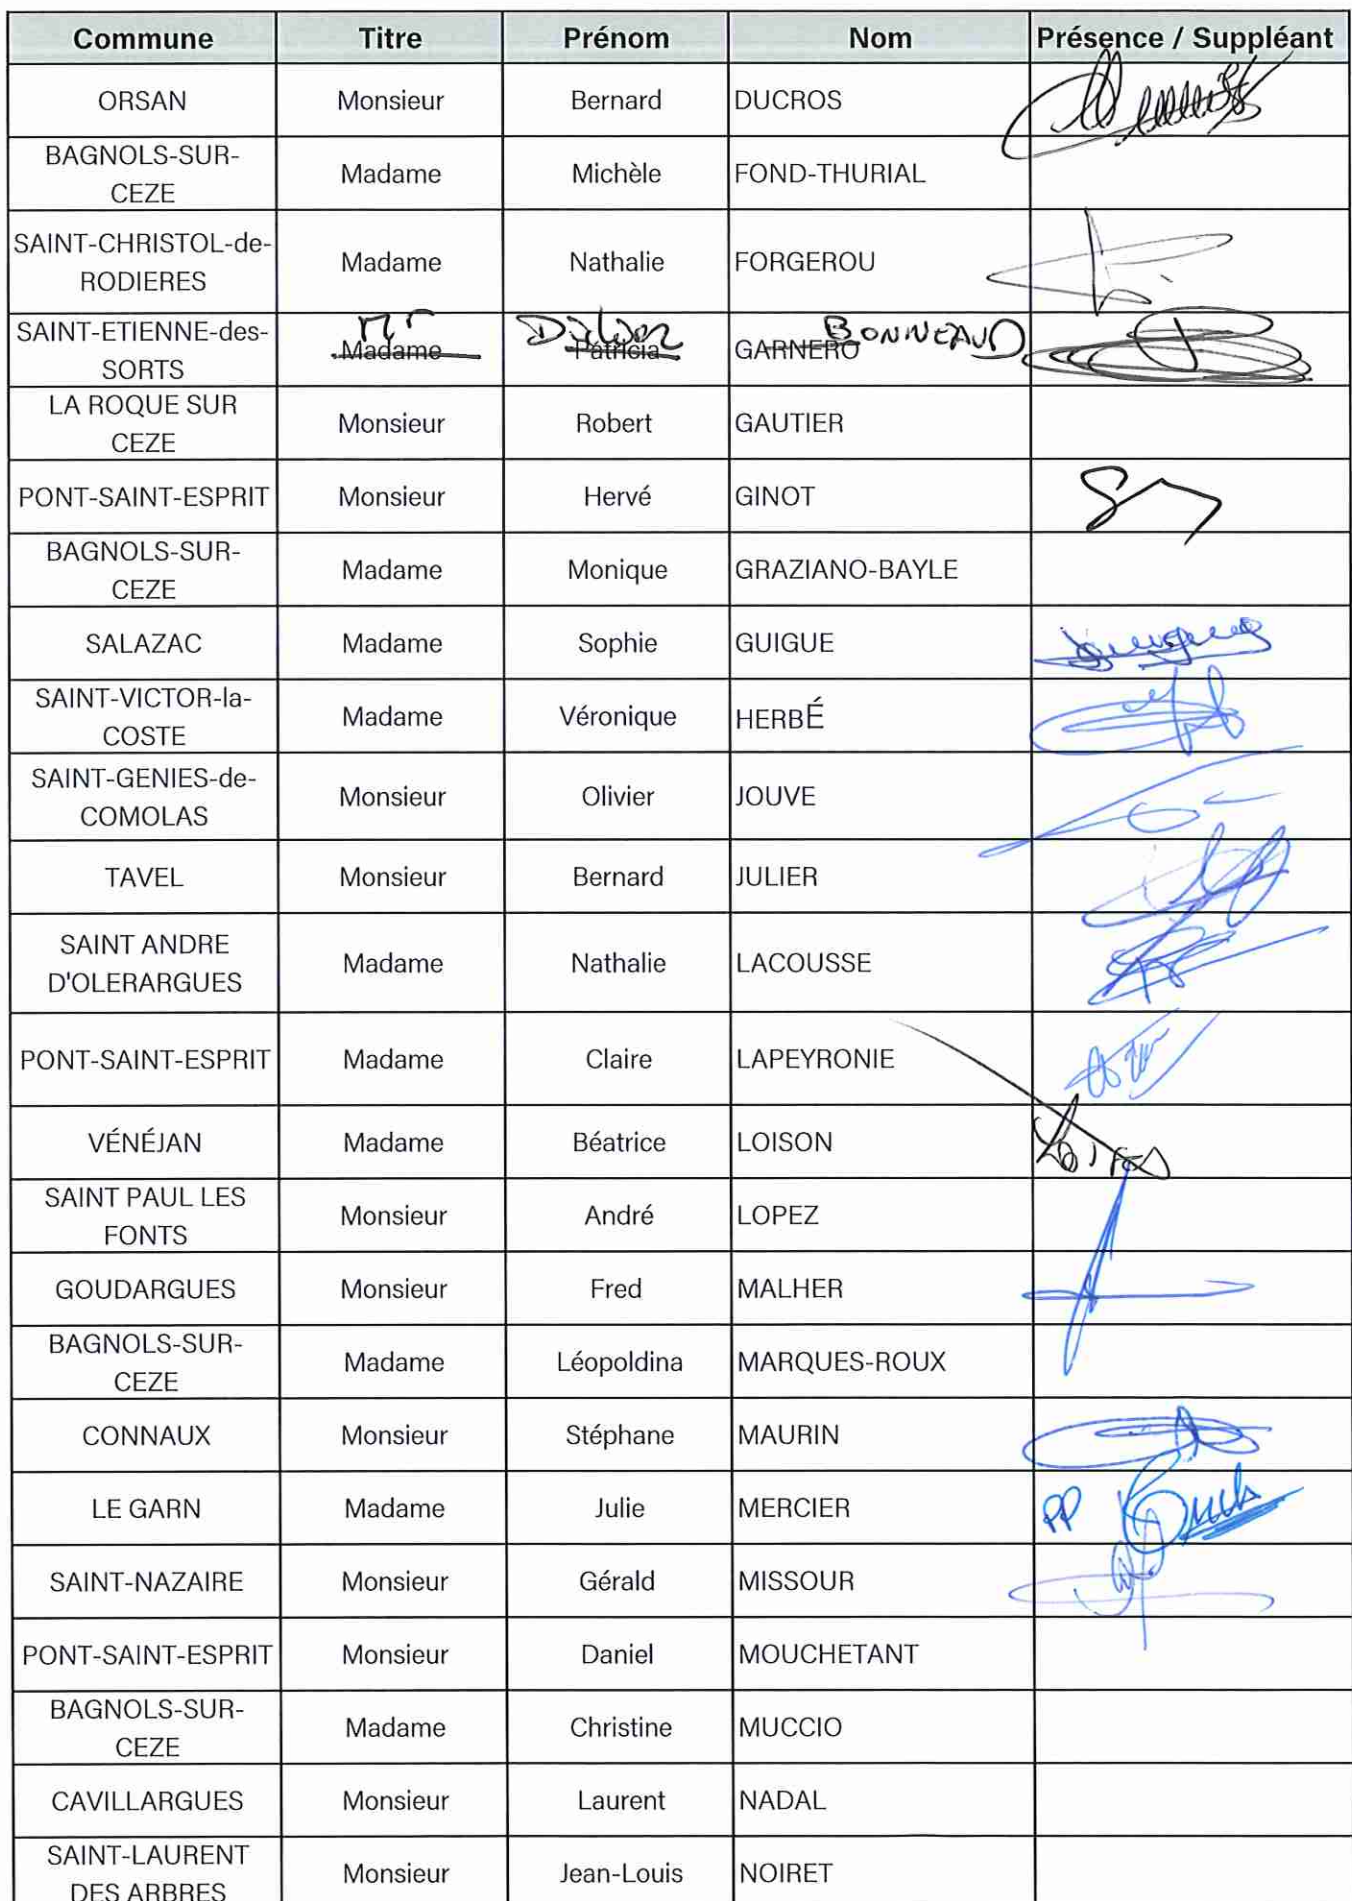 Commune Titre Prénom Nom Présence / Suppléant
ORSAN Monsieur Bernard DUCROS
BAGNOLS-SUR-
CEZE Madame Michèle FOND-THURIAL
SAINT-CHRISTOL-de-
RODIERES Madame Nathalie FORGEROU
Mr BONNEAUD
SAINT-ETIENNE-des-
SORTS Madame Patricia GARNERO
LA ROQUE SUR
CEZE Monsieur Robert GAUTIER
PONT-SAINT-ESPRIT Monsieur Hervé GINOT
BAGNOLS-SUR-
CEZE Madame Monique GRAZIANO-BAYLE
SALAZAC Madame Sophie GUIGUE
SAINT-VICTOR-la-
COSTE Madame Véronique HERBÉ
SAINT-GENIES-de-
COMOLAS Monsieur Olivier JOUVE
TAVEL Monsieur Bernard JULIER
SAINT ANDRE
D'OLERARGUES Madame Nathalie LACOUSSE
PONT-SAINT-ESPRIT Madame Claire LAPEYRONIE
VÉNÉJAN Madame Béatrice LOISON
SAINT PAUL LES
FONTS Monsieur André LOPEZ
GOUDARGUES Monsieur Fred MALHER
BAGNOLS-SUR-
CEZE Madame Léopoldina MARQUES-ROUX
CONNAUX Monsieur Stéphane MAURIN
LE GARN Madame Julie MERCIER PP
SAINT-NAZAIRE Monsieur Gérald MISSOUR
PONT-SAINT-ESPRIT Monsieur Daniel MOUCHETANT
BAGNOLS-SUR-
CEZE Madame Christine MUCCIO
CAVILLARGUES Monsieur Laurent NADAL
SAINT-LAURENT
DES ARBRES Monsieur Jean-Louis NOIRET